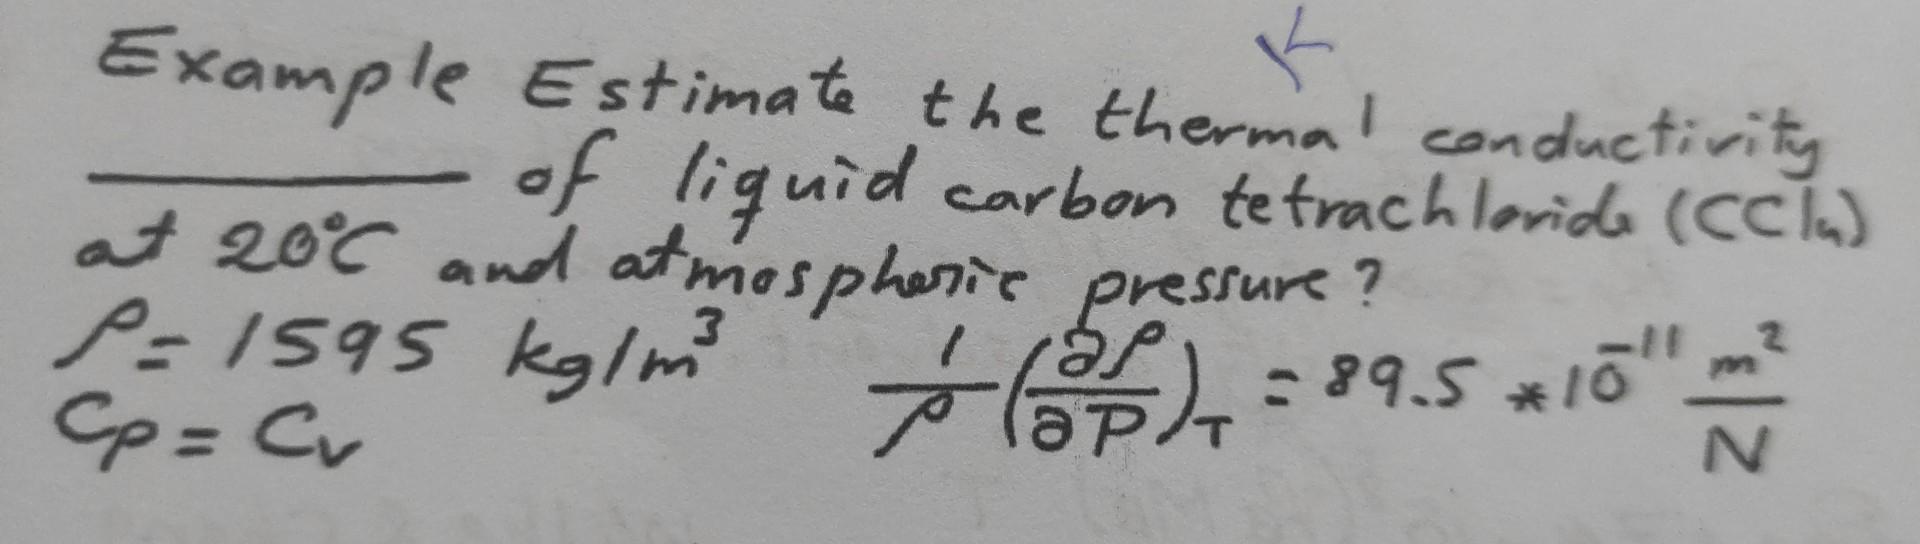 Example Estimate the thermal conductivity
of liquid carbon tetrachloride (CCl4)
at 20°C and atmospheric pressure?
ρ = 1595 kg/m³ 1/ρ (∂ρ/∂P)T = 89.5 * 10⁻¹¹ m²/N
Cp = Cv